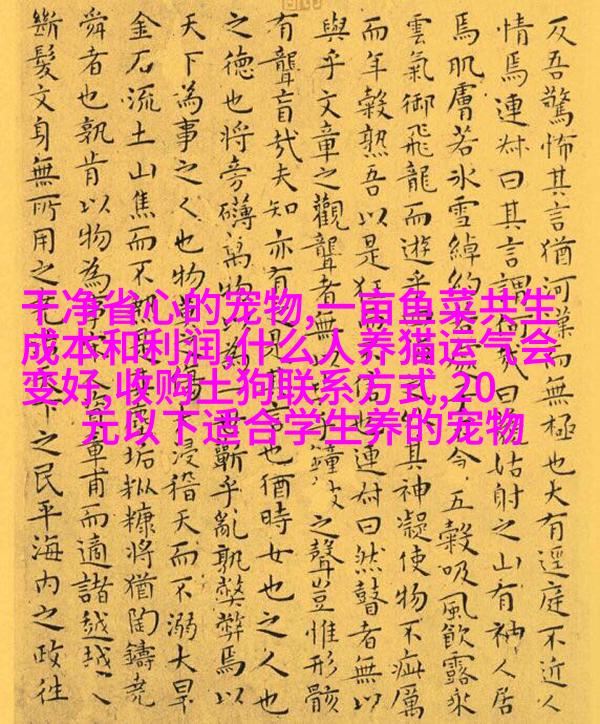 干净省心的宠物,一亩鱼菜共生
成本和利润,什么人养猫运气会
变好,收购土狗联系方式,20
元以下适合学生养的宠物
反吾驚怖其言猶河漢而無極也大有逕庭不近人
情焉連叔曰其言謂何哉曰姑射之山有神人居
焉肌膚若冰雪綽約五穀吸風飲露乘
雲氣御飛龍而遊乎其神凝使物不疵厲
而年穀熟吾以是狂信也連叔曰然瞽者無以
與乎文章之觀聾者無以乎鐘鼓之聲豈惟形骸
有聾盲哉夫知亦有是其言也猶時女也之人也
之德也將旁礴萬物以蘄乎亂孰弊弊焉以
天下為事之人也物莫之浸稽天而不溺大旱
金石流土山焦而不熱是塵垢粃糠將猶陶鑄堯
舜者也孰肯以物為事章甫而適諸越越人
斷髮文身無所用之堯天下之民平海內之政往